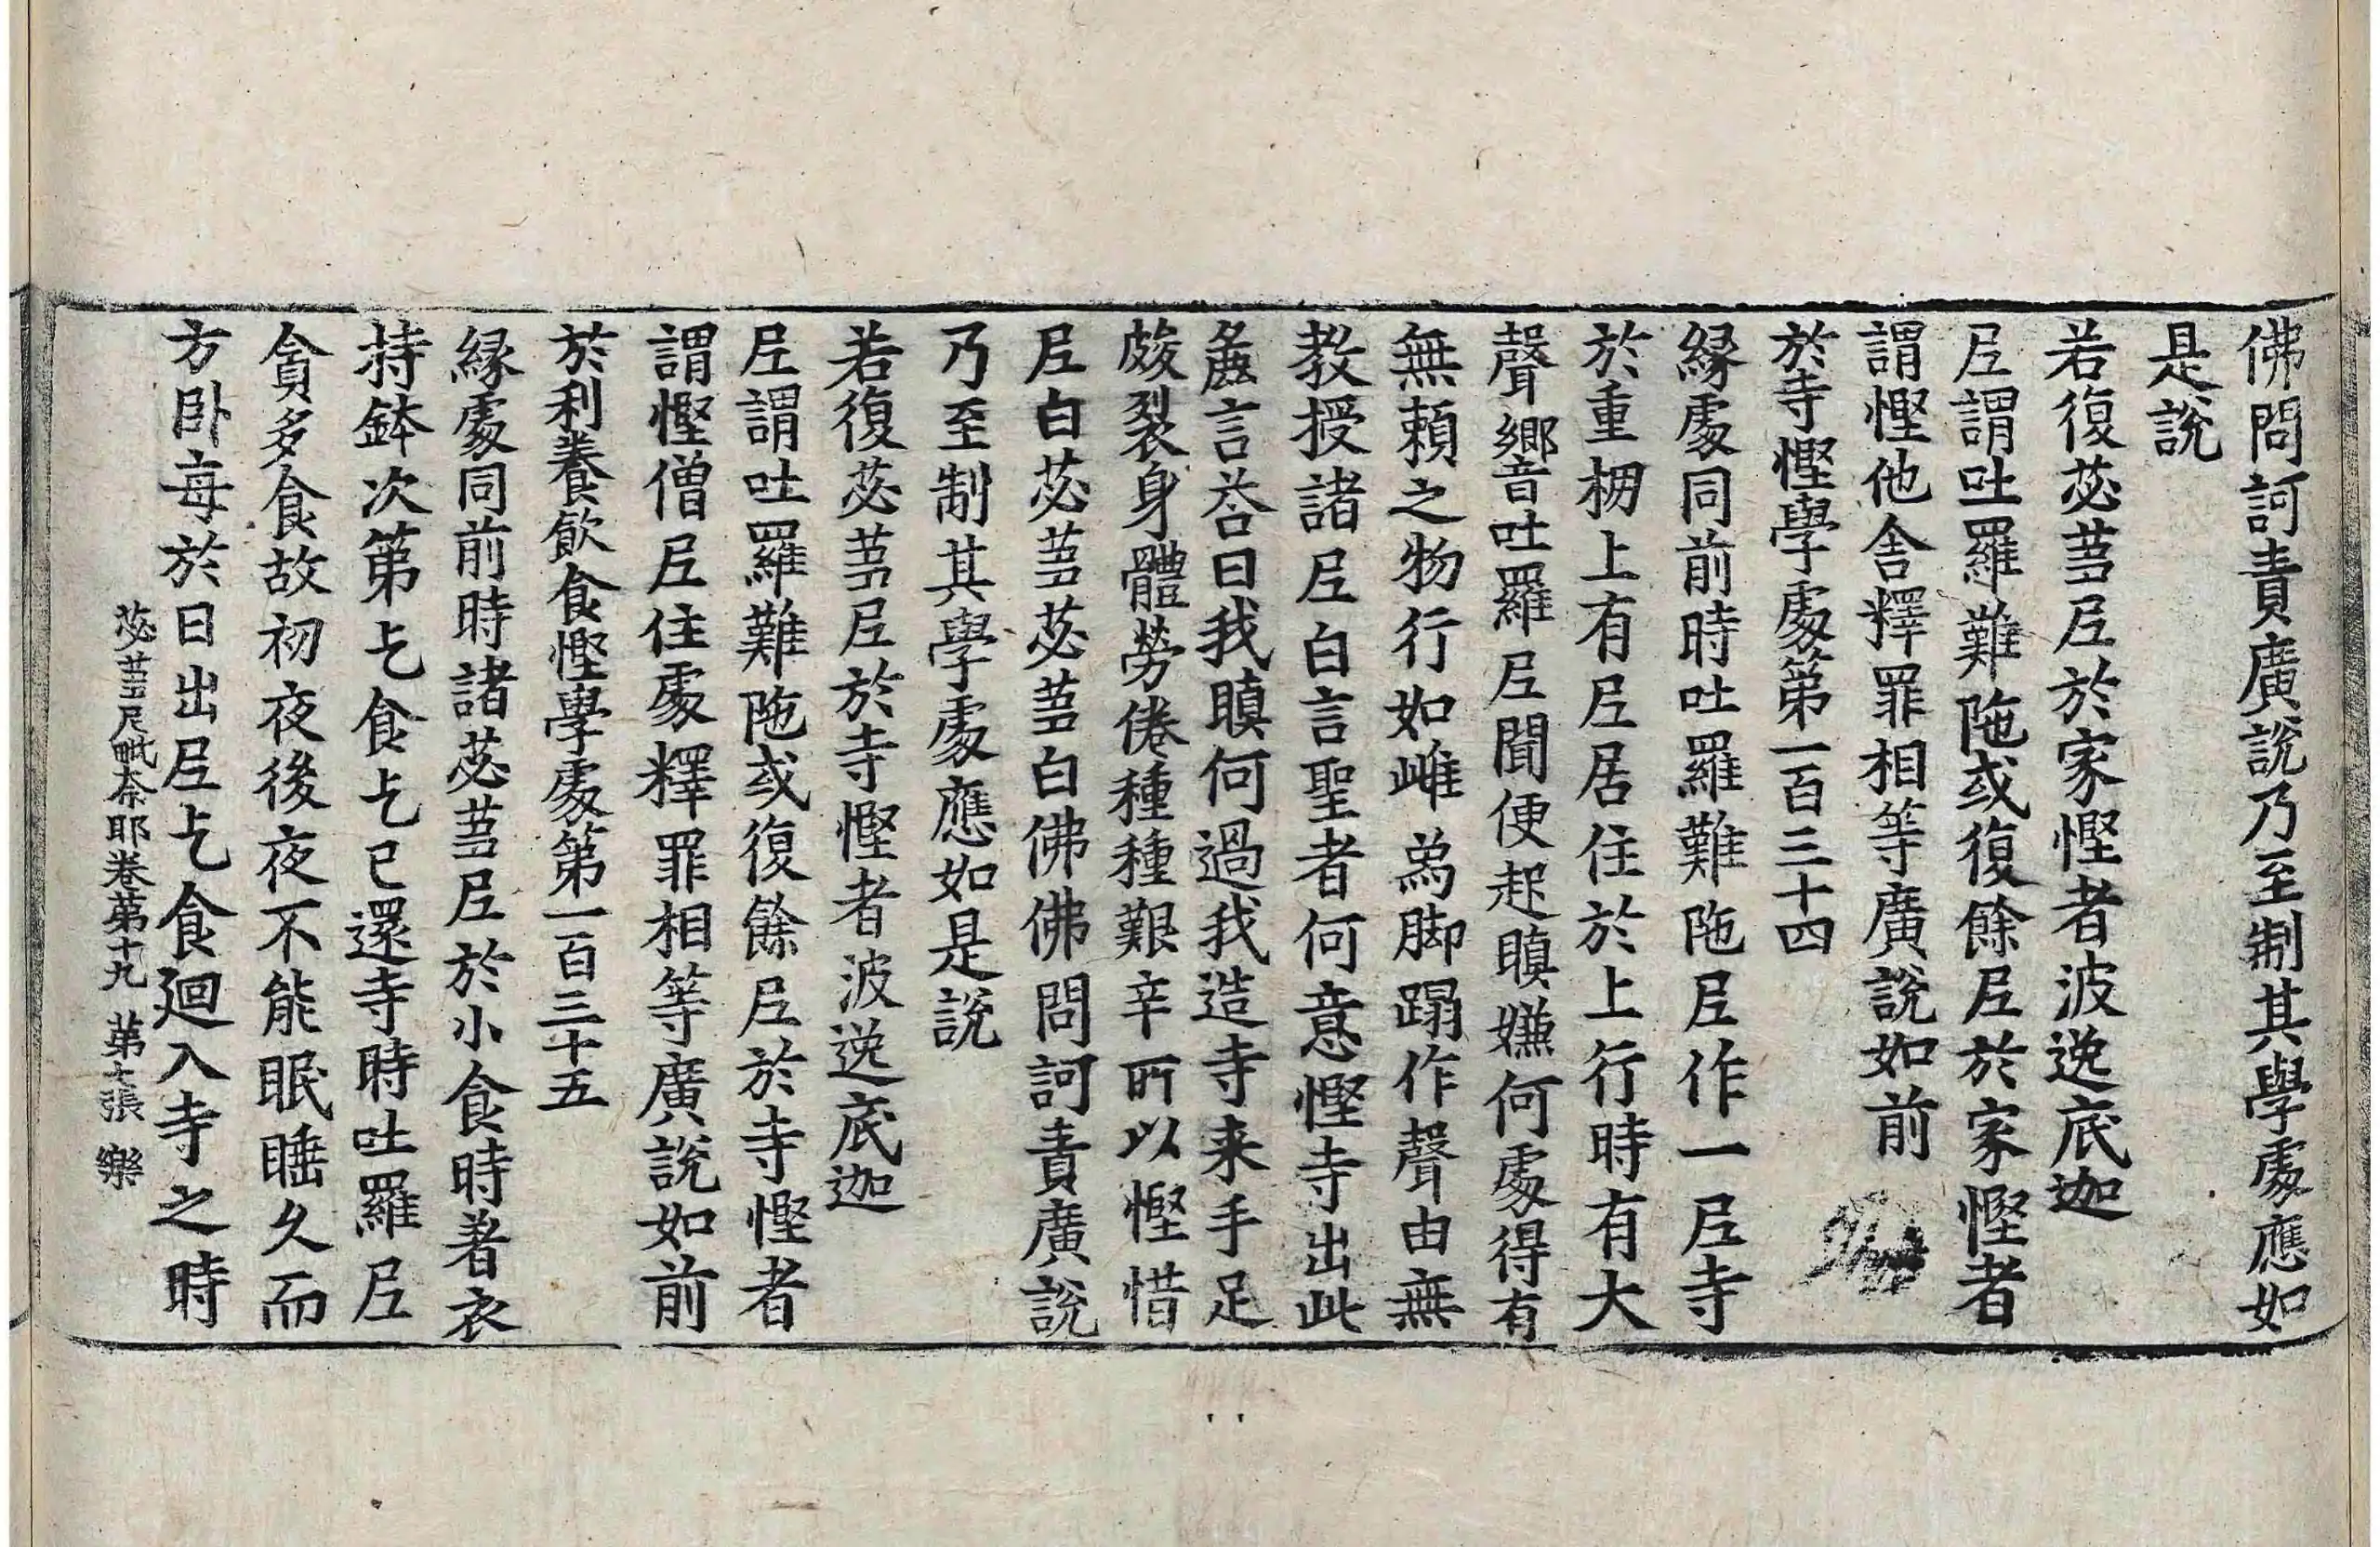 佛問訶責廣說乃至制其學處應如
是說
若復苾蒭尼於家慳者波逸底迦
尼謂吐羅難陁或復餘尼於家慳者
謂慳他舍釋罪相等廣說如前
於寺慳學處第一百三十四
緣處同前時吐羅難陁尼作一尼寺
於重棚上有尼居住於上行時有大
聲響吐羅尼聞便起瞋嫌何處得有
無賴之物行如雌為脚蹋作聲由無
教授諸尼白言聖者何意慳寺出此
麁言荅曰我瞋何過我造寺来手足
皴裂身體勞倦種種艱辛所以慳惜
尼白苾蒭苾蒭白佛佛問訶責廣說
乃至制其學處應如是說
若復苾蒭尼於寺慳者波逸底迦
尼謂吐羅難陁或復餘尼於寺慳者
謂慳僧尼住處釋罪相等廣說如前
於利養飲食慳學處第一百三十五
緣處同前時諸苾蒭尼於小食時著衣
持鉢次第乞食乞已還寺時吐羅尼
貪多食故初夜後夜不能眠睡久而
方卧每於日出尼乞食迴入寺之時
苾蒭尼毗奈耶卷第十九 第七張 樂